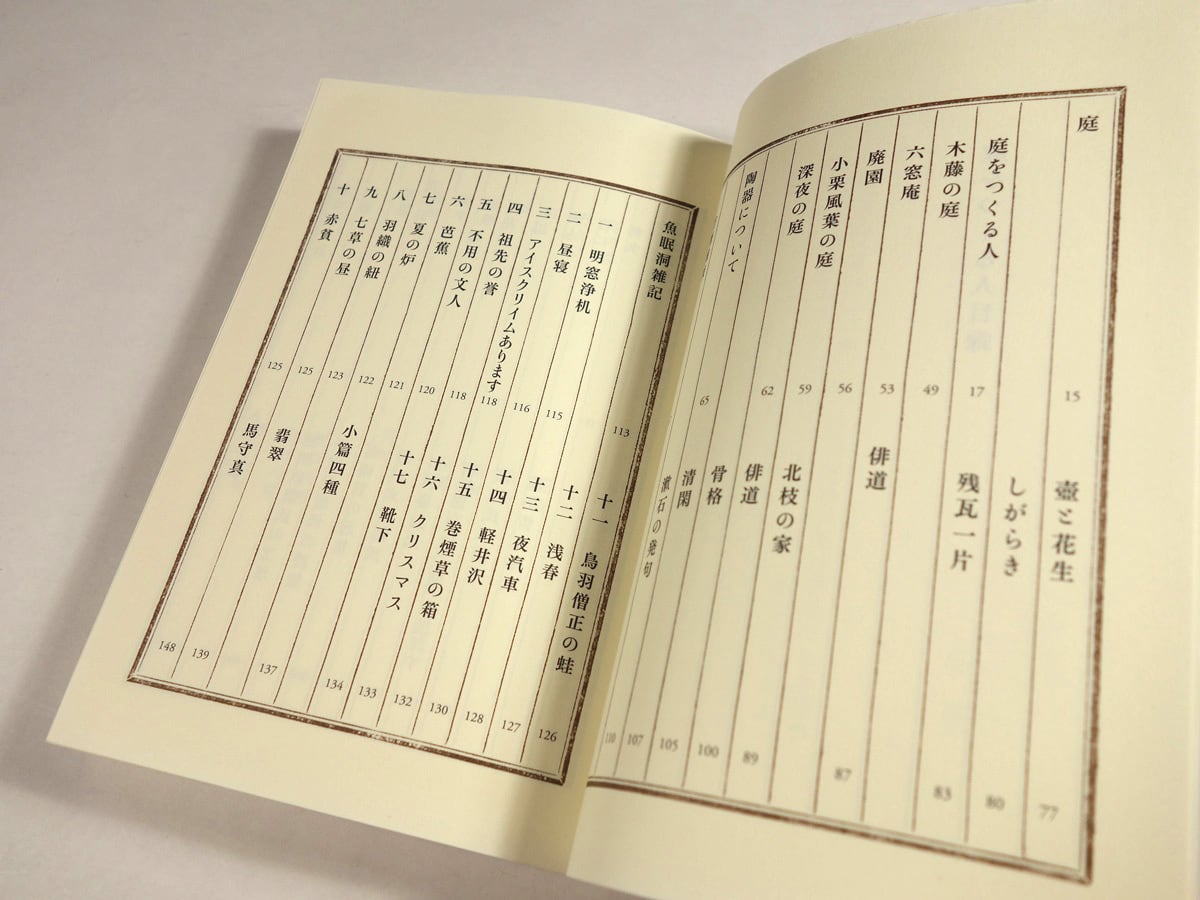 庭 15
庭をつくる人 17
木藤の庭 49
六窓庵 53
廃園 56
小栗風葉の庭 59
深夜の庭 62
陶器について 65
壺と花生 77
しがらき 80
残瓦一片 83
俳道 87
北枝の家 89
俳道 100
骨格 105
清閑 107
漱石の発句 110
魚眠洞雑記 113
一 明窓浄机 115
二 昼寝 116
三 アイスクリイムあります 118
四 祖先の誉 118
五 不用の文人 120
六 芭蕉 121
七 夏の炉 122
八 羽織の紐 123
九 七草の昼 125
十 赤貧 125
十一 鳥羽僧正の蛙 126
十二 浅春 127
十三 夜汽車 128
十四 軽井沢 130
十五 巻煙草の箱 132
十六 クリスマス 133
十七 靴下 134
小篇四種 137
翡翠 139
馬守真 148